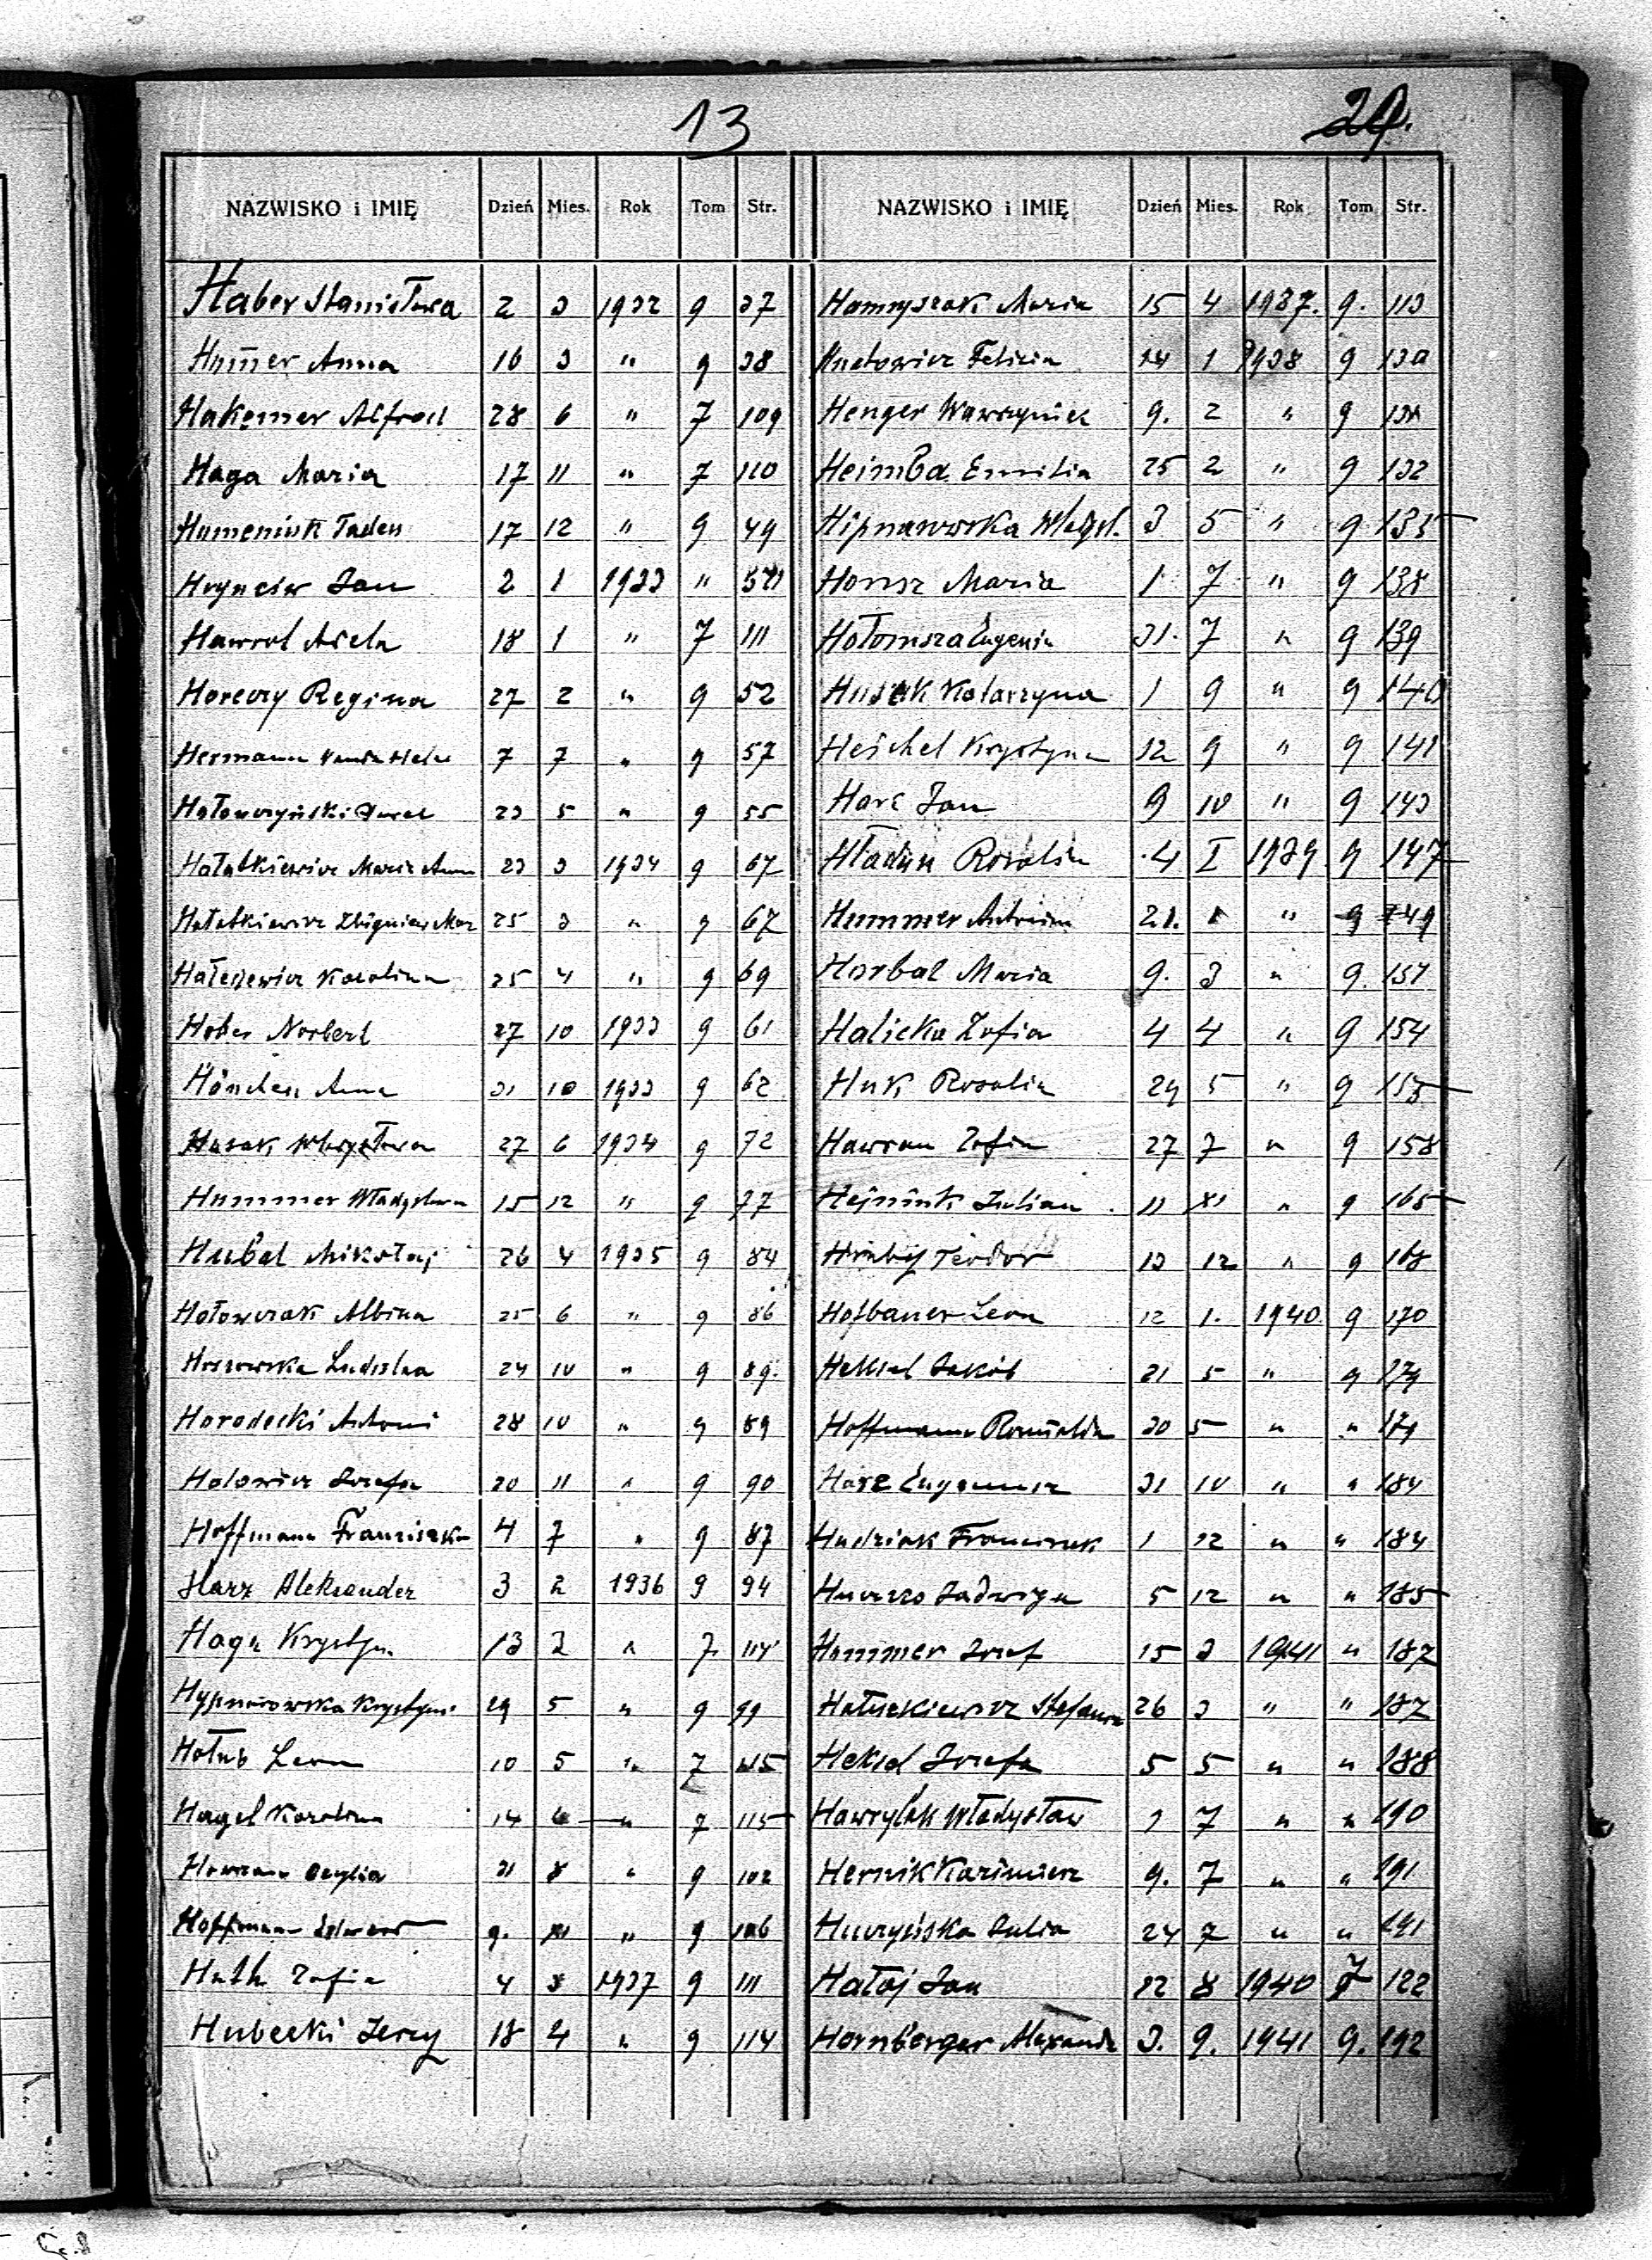 13
24.
NAZWISKO i IMIĘ Dzień Mies. Rok Tom Str.
Haber Stanisława 2 3 1932 9 37
Hummer Anna 16 3 " 9 38
Hakemer Alfred 28 6 " 7 109
Haga Maria 17 11 " 7 110
Humeniuk Tadeu 17 12 " 9 49
Hryńciw Jan 2 1 1933 "
Hawrot Adela 18 1 " 7 111
Horeczy Regina 27 2 " 9 52
Hermann 7 7 " 9 57
Hołowczyński 23 5 " 9 55
Hałatkiewicz Maria Anna 23 3 1934 9 67
Hałatkiewicz Zbigniew Mar 25 3 " 9 67
Karolina 25 4 " 9 69
Norbert 27 10 1933 9 61
Hönchen Anna 31 10 1933 9 62
Husak 27 6 1934 9 72
Hummer Władysława 15 12 " 9 77
Hubal Mikołaj 26 4 1935 9 84
Hołowczak Albina 25 6 " 9 86
24 10 " 9 89.
Horodecki Antoni 28 10 " 9 89
Holowicz Józefa 20 11 " 9 90
Hoffmann Franciszka 4 7 " 9 87
Harz Aleksander 3 2 1936 9 94
Haga Krystyna 13 2 " 7 114
Hypnarowska Krystyna 29 5 " 9 99
Hołub Leon 10 5 " 7 115
Hagel Karolina 14 6 " 7 115
Hawran Cecylia 31 8 " 9 102
Hoffmann Edward 9. " 9 106
Huth Zofia 4 3 1937 9 111
Hubecki Jerzy 18 4 " 9 114
NAZWISKO i IMIĘ Dzień Mies. Rok Tom Str.
Hamryszak Maria 15 4 1937. 9. 113
Felicia 14 1 1938 9 130
Henger Wawrzyniec 9. 2 " 9
Heimbd. Emilia 25 2 " 9 132
Hipnarowska Władysł. 3 5 " 9 135
Honsz Maria 1 7 " 9 138
Hołomsza Eugenia 31. 7 " 9 139
Husak Katarzyna 1 9 " 9 140
Heichel Krystyna 12 9 " 9 141
Harc Jan 9 10 " 9 143
Hładun Rozalia 4 I 1939 9 147
Hummer Antonina 21. " 9 149
Horbal Maria 9. 3 " 9. 151
Halicka Zofia 4 4 " 9 154
Huk Rozalia 29 5 " 9 155
Hawran Zofia 27 7 " 9 158
Hejniuk Julian 11 XI " 9 165
Teodor 13 12 " 9 168
Hofbauer Leon 12 1. 1940 9 170
Heksel Jakób 21 5 " 9 174
Hoffmann Romualda 30 5 " " 174
Harz 31 10 " " 184
Hudziak Franciszek 1 12 " " 184
Jadwiga 5 12 " " 185
Hummer Józef 15 3 1941 " 187
Stefania 26 3 " " 187
Heksel Józefa 5 5 " " 188
Hawrylak Władysław 1 7 " " 190
Hernik Kazimierz 9. 7 " " 191
Huczyńska Julia 24 7 " " 191
Hałaj Jan 22 8 1940 7 122
Hornberger Alexandr 3. 9. 1941 9. 192